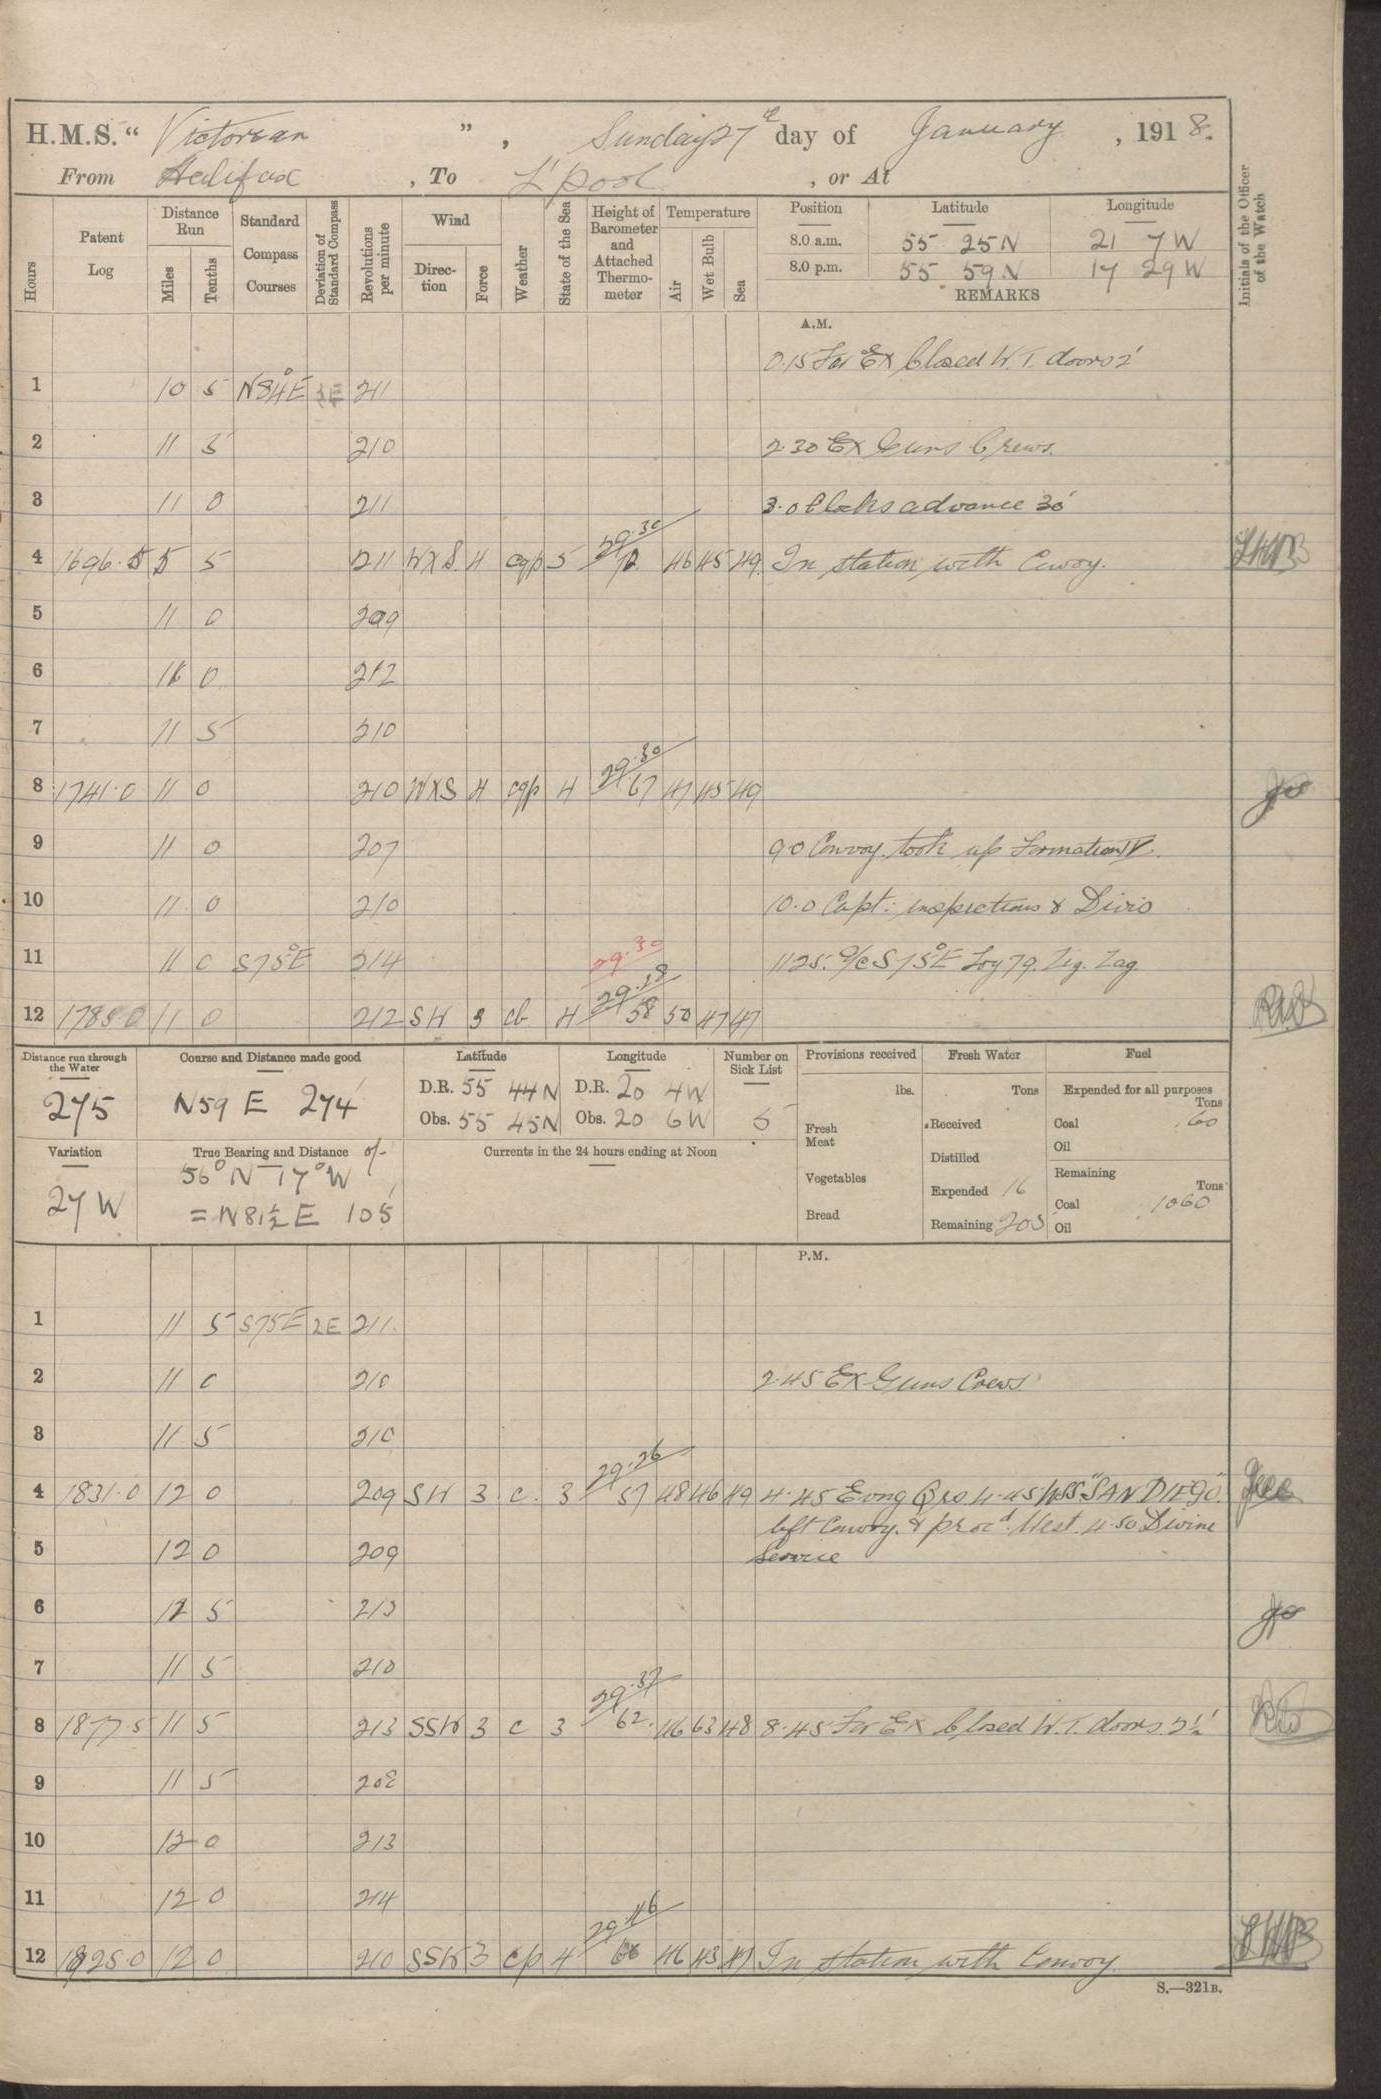 H.M.S. " Victorian ", Sunday 27th day of January, 1918.
From Halifax, To L'pool, or At
Hours
Patent Log
Distance Run
Miles
Tenths
Standard Compass Courses
Deviation of Standard Compass
Revolutions per minute
Wind
Direction
Force
Weather
State of the Sea
Height of Barometer and Attached Thermometer
Temperature
Air
Wet Bulb
Sea
Position Latitude Longitude
8.0 a.m. 55 25 N 21 7 W
8.0 p.m. 55 59 N 17 29 W
REMARKS
Initials of the Officer of the Watch
A.M.
0.15 For Ex Closed W.T. doors 2'
1 10 5 N84°E 211
2 11 5 210 2.30 Ex Guns Crews.
3 11 0 211 3.0 Clocks advance 30'
4 1696.5 5 211 WXS. 4 cqp 5 29.30 72 46 45 49 In station with Convoy.
5 11 0 209
6 11 0 212
7 11 5 210
8 1741.0 11 0 210 WXS 4 cqp 4 29.30 67 47 45 49
9 11 0 207 9.0 Convoy took up Formation
10 11 0 210 10.0 Capt: inspections & Divis
11 11 0 S75°E 214 29.30 11.25. a/c S75°E Log 79. Zig. Zag
12 1785.0 11 0 212 SW 3 cb 4 29.28 58 50 47 47
Distance run through the Water
275
Course and Distance made good
N59 E 274'
Latitude
D.R. 55 44 N
Obs. 55 45 N
Longitude
D.R. 20 4 W
Obs. 20 6 W
Number on Sick List
5
Provisions received
lbs.
Fresh Meat
Vegetables
Bread
Fresh Water
Tons
Received
Distilled
Expended 16
Remaining 203
Fuel
Expended for all purposes
Tons
Coal 60
Oil
Remaining
Tons
Coal 1060
Oil
Variation
27 W
True Bearing and Distance of
56°N 17°W
= N81½E 105'
Currents in the 24 hours ending at Noon
P.M.
1 11 5 S75E 2E 211
2 11 0 210 2.45 Ex Guns Crews
3 11 5 210
4 1831.0 12 0 209 SW 3 c. 3 29.26 57 48 46 49 4.45 Evng Qrs 4.45 USS "SAN DIEGO"
left Convoy. & procd West. 4.50 Divine
5 12 0 209 Service
6 12 5 213
7 11 5 210
8 1877.5 11 5 213 SSW 3 c 3 29.37 62 46 63 48 8.45 For Ex Closed W.T. doors. 2½'
9 11 5 208
10 12 0 213
11 12 0 214
12 1925.0 12 0 210 SSW 3 cp 4 29.46 66 46 43 47 In station with Convoy
S.—321B.